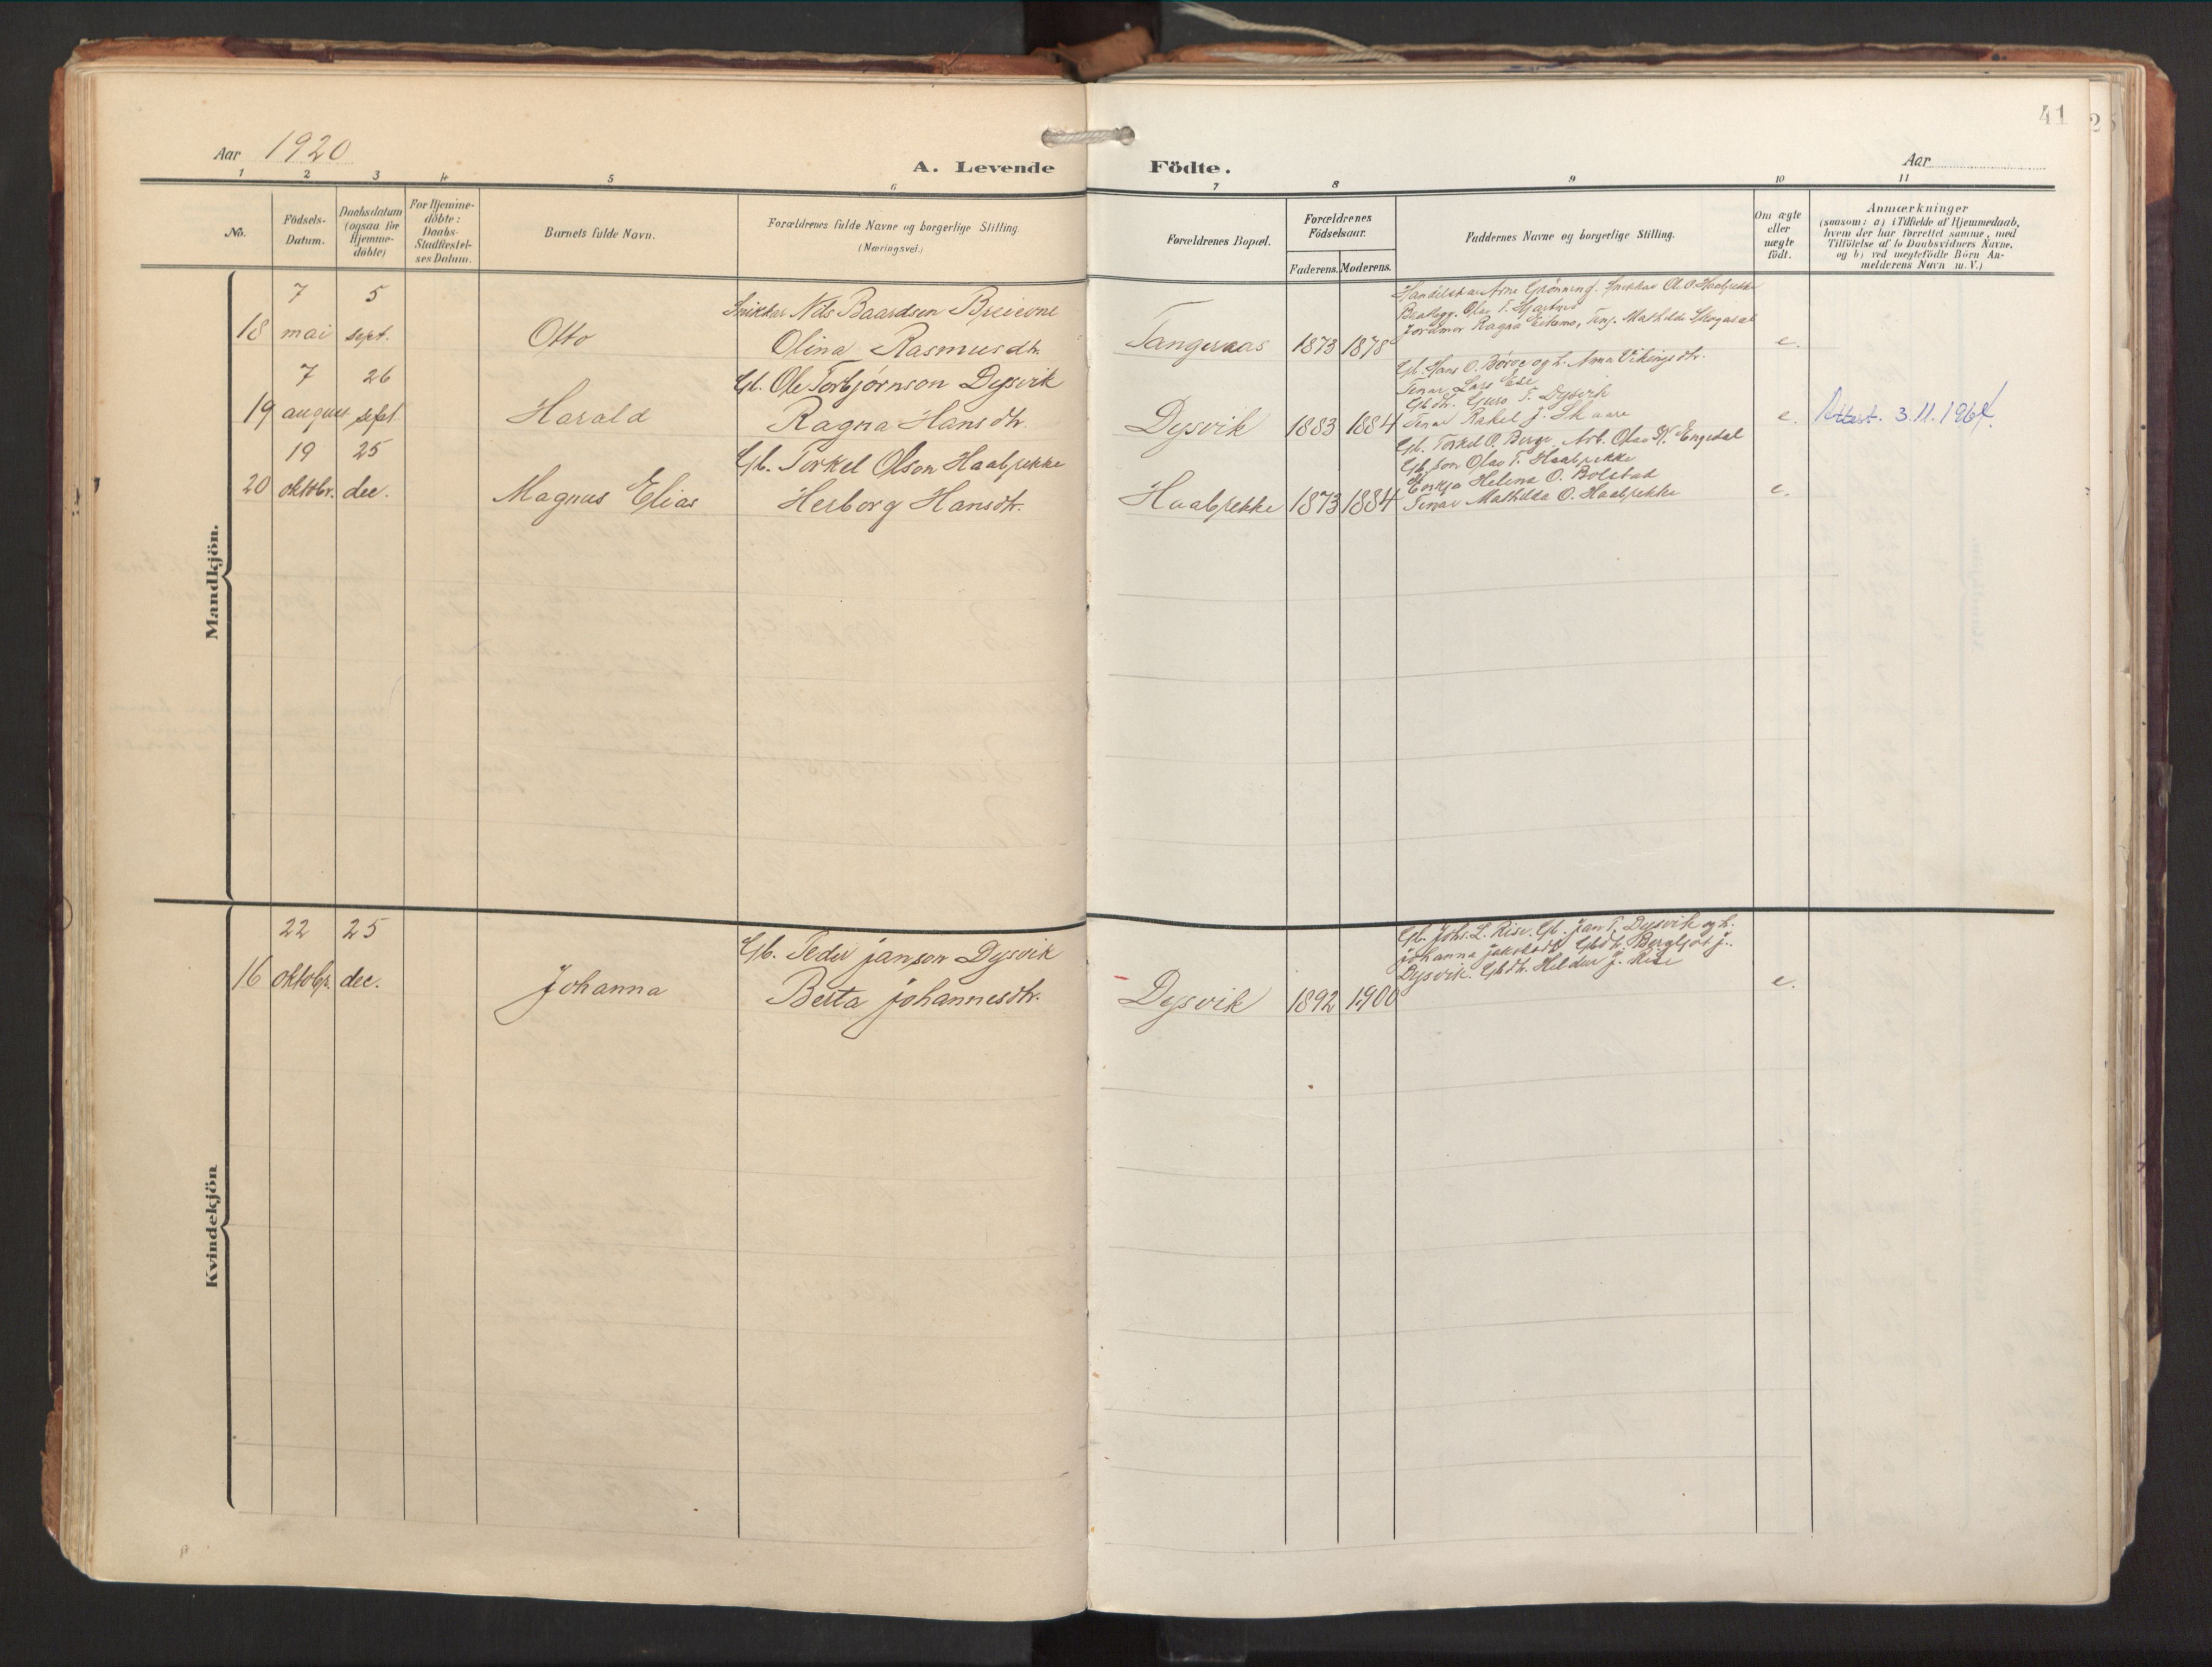 41
Aar 1920
A. Levende Fødte.
Aar
1 2 3 4 5 6 7 8 9 10 11
No.
Fødsels-
Datum.
Daabsdatum
(ogsaa for
Hjemme-
døbte)
For Hjemme-
døbte:
Daabs-
Stadfæstel-
ses Datum.
Barnets fulde Navn.
Forældrenes fulde Navne og borgerlige Stilling.
(Næringsvei.)
Forældrenes Bopæl.
Forældrenes
Fødselsaar.
Faderens. Moderens.
Faddernes Navne og borgerlige Stilling.
Om ægte
eller
uægte
født.
Anmærkninger
(saasom: a) i Tilfælde af Hjemmedaab,
hvem der har forrettet samme, med
Tilføielse af to Daabsvidners Navne,
og b) ved uegtefødte Børn An-
melderens Navn m. V.)
Mandkjön.
7 5
18 mai sept.
Otto
Snikkar Nils Baardsen Breievne
Olina Rasmusdtr.
Tangeraas 1873 1878
Handelskar Arne Grønning. Snikkar O. O. Haabrekke
Olav T.
Jordmor Ragna Eikemo, Tenj. Mathilde
e.
7 26
19 august sept.
Harald
Gb. Ole Torbjørnson Dysvik
Ragna Hansdtr.
Dysvik 1883 1884
Gb. Hans O. Børve og h. Anna Vikingsdtr.
Tenar Lars Ese
Gbdtr. Guro T. Dysvik
Tenar Rakel J. Skaare
e.
Attest. 3.11.1964.
19 25
20 oktobr. dec.
Magnus Elias
Gb. Torkel Olson Haabrekke
Herborg Hansdtr.
Haabrekke 1873 1884
Gb. Torkel O. Berge. Arb. Olav K. Engedal
Gb. son Olav T. Haabrekke
Helena O. Bolstad
Tenar Mathilda O. Haabrekke
e.
Kvindekjön
22 25
16 oktobr. dec.
Johanna
Gb. Peder Janson Dysvik
Berta Johannesdtr.
Dysvik 1892 1900
Gb. Johs. L. Rise. Gb. Jan P. Dysvik og h.
Johanna Jakobsdtr. Gbdtr. Bergljot J.
Dysvik. Gbdtr. Hildur J. Rise
e.